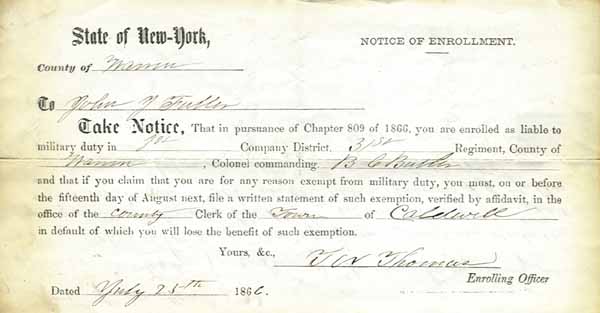 State of New-York,
NOTICE OF ENROLLMENT.
County of Warren
To John J Fuller
Take Notice, That in pursuance of Chapter 809 of 1866, you are enrolled as liable to
military duty in 1st Company District. 31st Regiment, County of
Warren, Colonel commanding. B C Butler
and that if you claim that you are for any reason exempt from military duty, you must, on or before
the fifteenth day of August next, file a written statement of such exemption, verified by affidavit, in the
office of the county Clerk of the Town of Caldwell
in default of which you will lose the benefit of such exemption.
Yours, &c., Thomas
Enrolling Officer
Dated July 25th 1866.